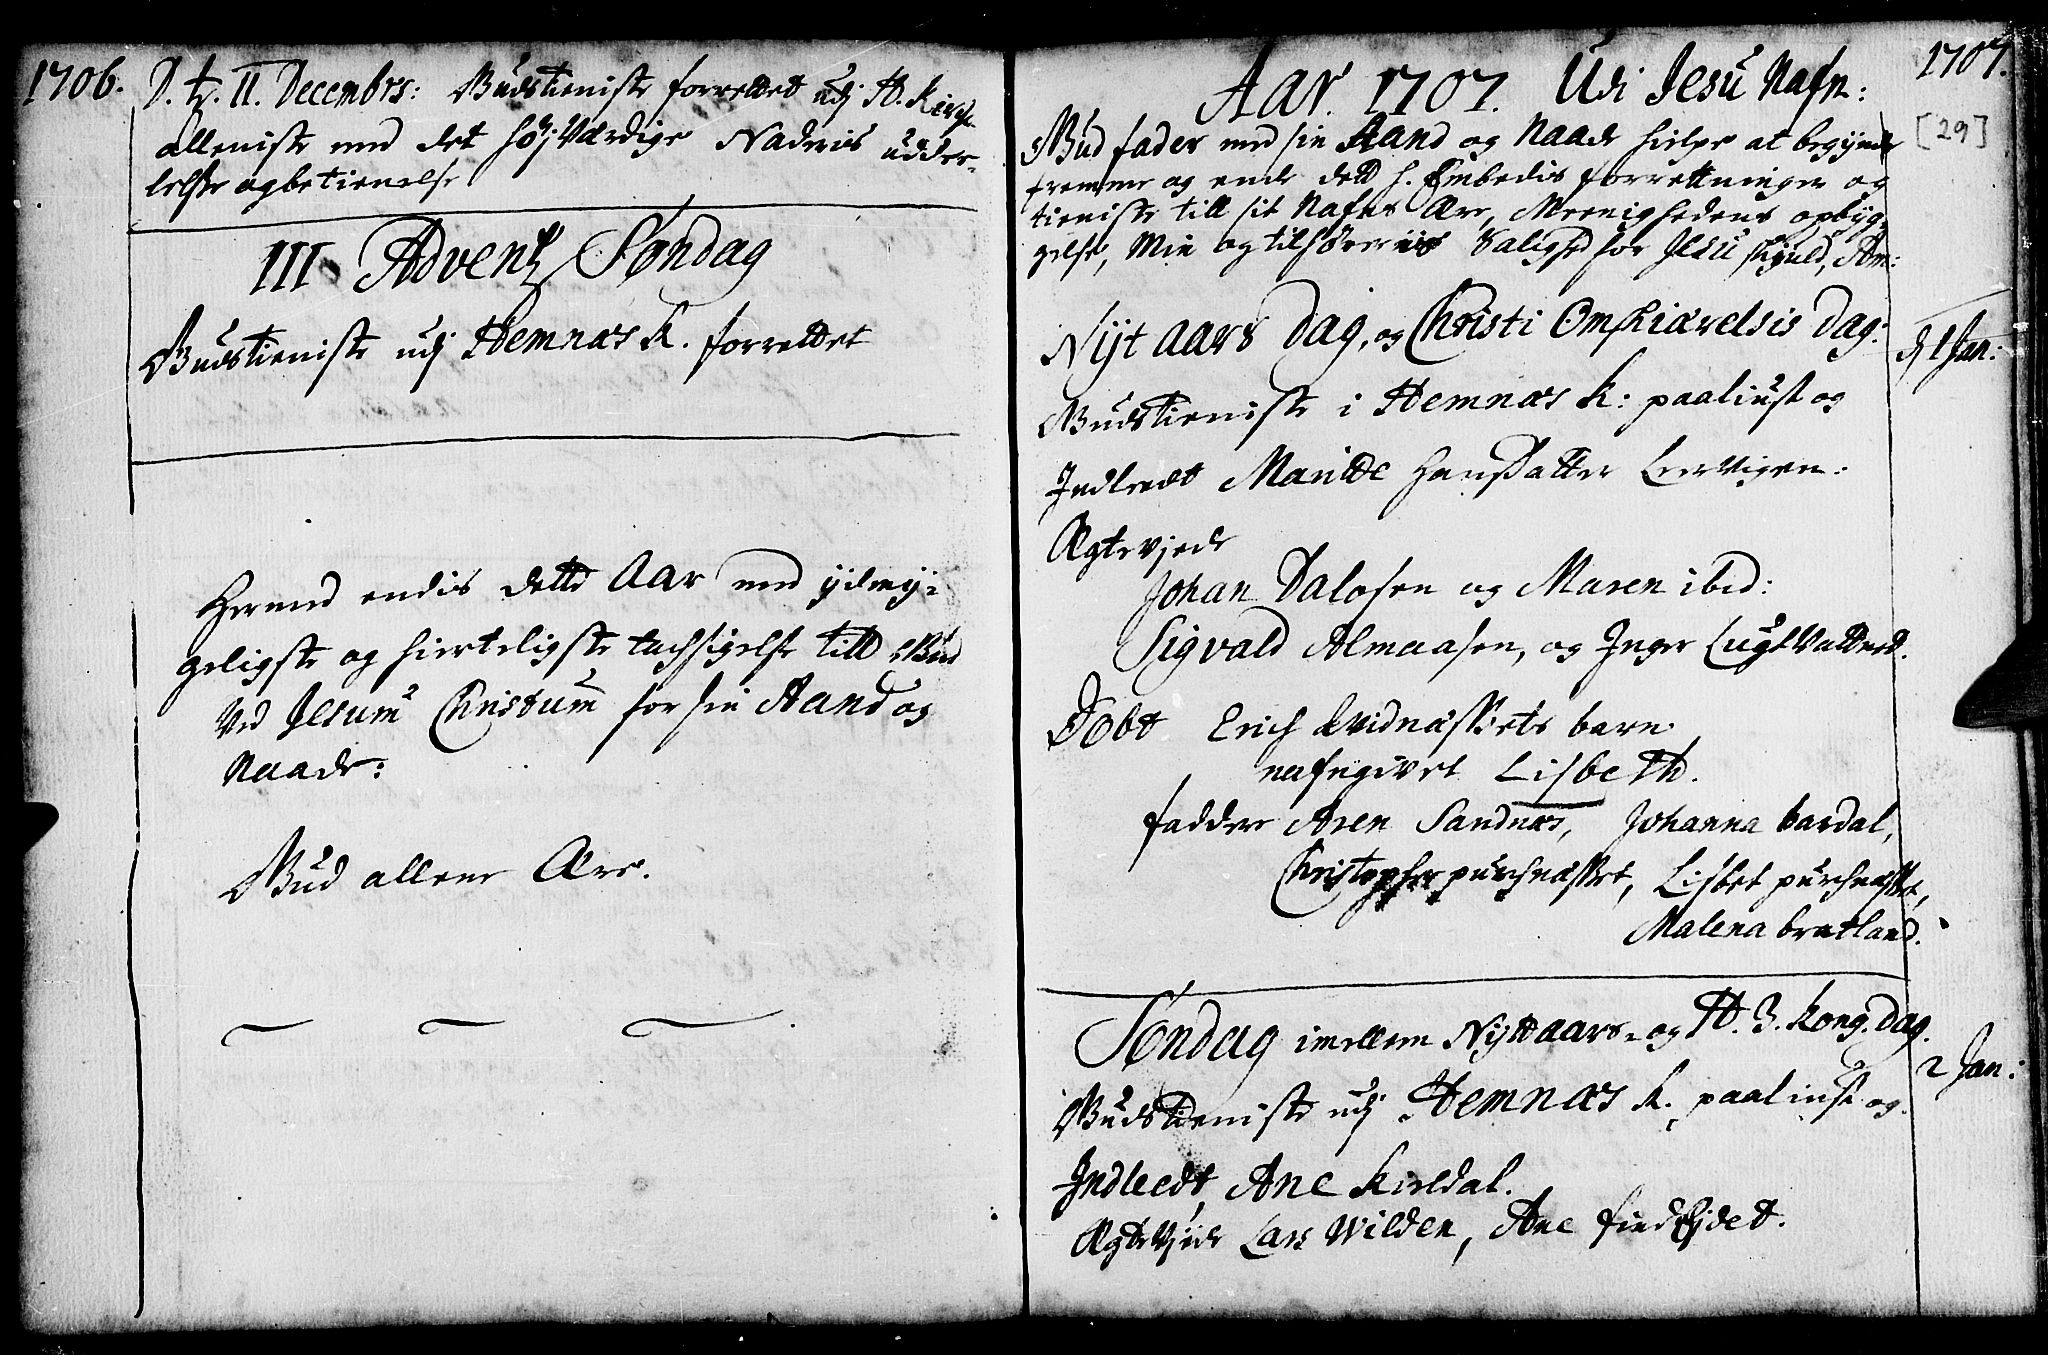 1706.
D. ... 11. Decembrs: Gudstieniste forrettet udj H. Kirche
alleniste med det høj Værdige Nadveris uddee-
lelse og betienelse
III Adventz Søndag
Gudstieniste udj Hemnæs K. forrettet
Hermed endis dette Aar med ydmy-
geligste og hierteligste tachsigelse till Gud
Ved Jesum Christum for sin Aand og
Naade:
Gud allene Ære.
1707.
[29]
Aar. 1707. Udi Jesu Nafn:
Gud fader med sin Aand og Naade hielpe at begynde
fremme og ende dett h. Embedis forrettninger og
tieniste till sit Nafns Ære, Meenighedens opbyg-
gelse, Min og tilhørernis Saligh for Jesu skyld, Am:
Nyt aars Dag, og Christi Omskiærelsis Dag:
d 1 Jan:
Gudstieniste i Hemnæs K: paaliust og
Indleedt Maritte Hansdatter Leervigen:
Ægtevjede
Johan Dalosen og Maren ibid:
Sigvald Almaasen, og Inger Lugtvatted.
Døbt Erich Qvidnæssets barn
nafngivet Lisbeth.
faddere Aren Sandnæs, Johanna bardal,
Christopher purchnæsset, Lisbet purchnæsset,
Malena bratland.
Søndag imellem Nyttaars- og H. 3. Kong. Dag.
2 Jan:
Gudstieniste udj Hemnæs K. paaliust og
Indleedt Ane Kieldal.
Ægtevjede Lars Wilden, Ane findEjdet.